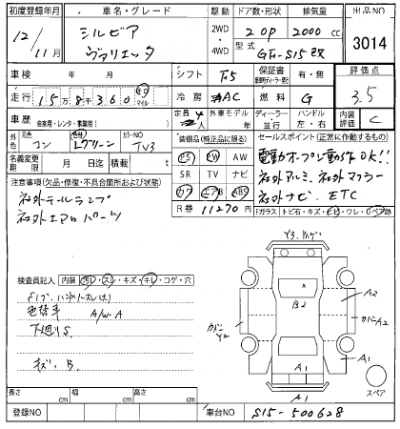 初度登録年月 車名・グレード 駆動 ドア数・形状 排気量 出品NO
12年11月 シルビア ヴァリエッタ 2WD・4WD 2 OP 2000 cc 3014
型式 GF-S15改
車検 年 月 シフト F5 保証書 有・無 評価点
走行 15万8千360 キロ マイル 冷房 AC 燃料 G 3.5
車歴 自家用・レンタ・事業用 定員 4 外車モデル年 ディーラー 並行 ハンドル 左・右 内装評価 C
外色 元色 コン 色替 Lグリーン カラーNO TV3 装備品（純正品に限る） セールスポイント（正常に作動するもの）
名義変更期限 月 日迄 積載 t PS PW AW 電動オープン動作OK!!
注意事項（欠品・修復・不具合箇所および状態） SR TV ナビ 社外アルミ、社外マフラー
社外テールランプ カワ エアB ABS 社外ナビ、ETC
社外エアロパーツ R券 11270円 Fガラス トビ石・キズ・ヒビ・ワレ・リペア跡
検査員記入 内装 汚レ・スレ・キズ・キレ・コゲ・穴
色替車 A/W A
下廻りS
キズ、B.
Y3
B2
A2
カバーA2
Y2
A1
A1
A1
スペア
長さ cm 幅 cm 高さ cm
登録NO 車台NO S15-500628